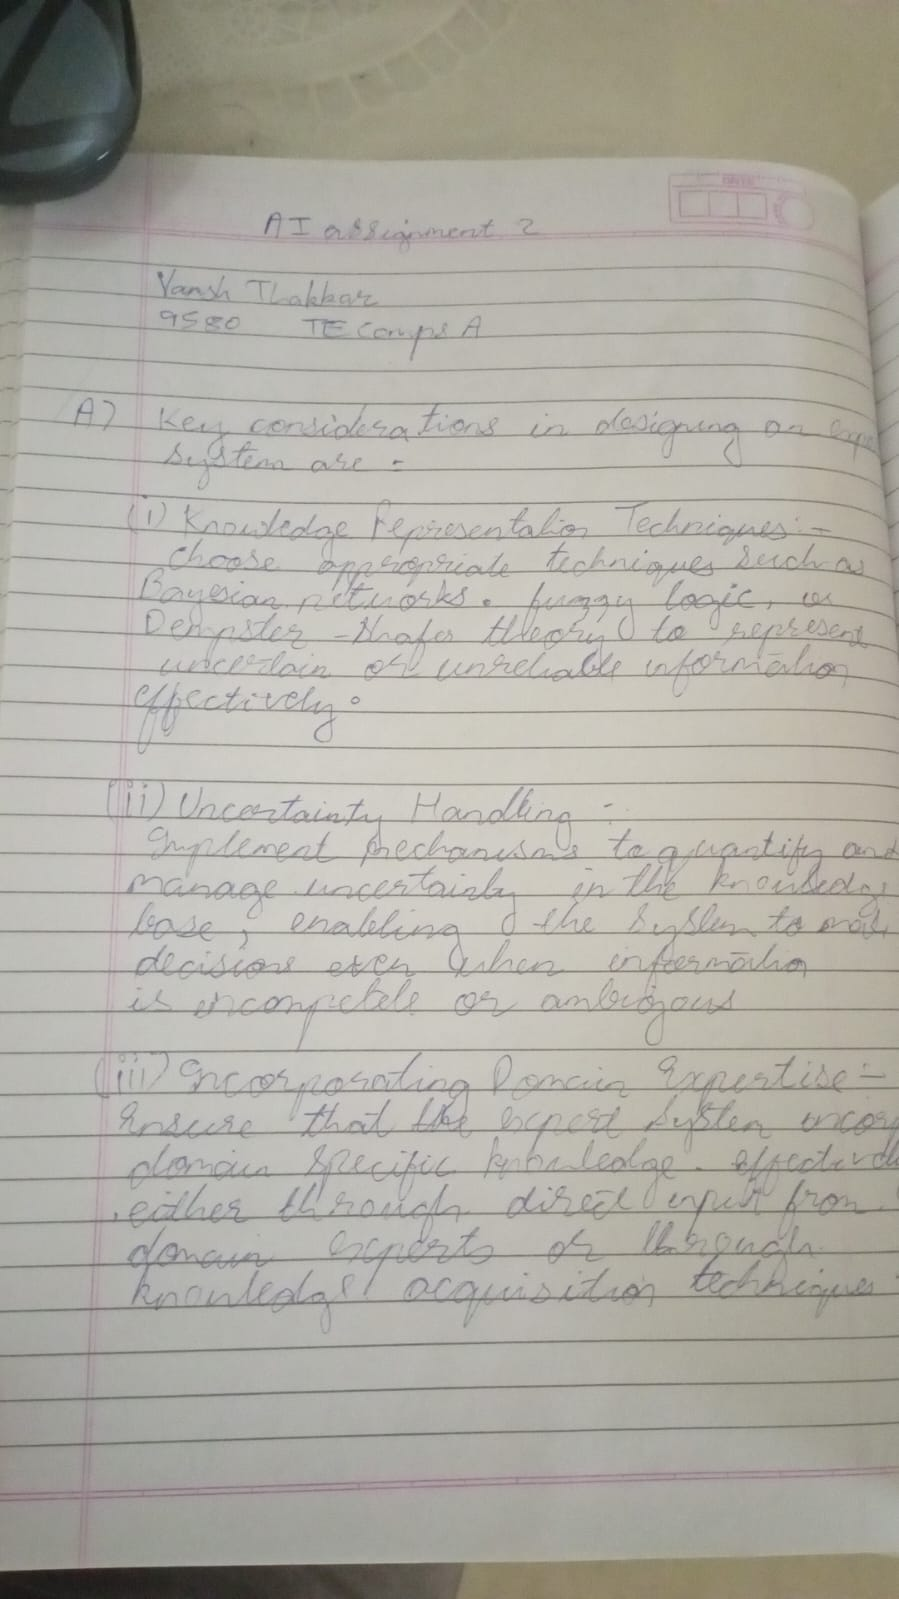 DATE
AI assignment 2
Vansh Thakkar
9580 TE Comps A
A) Key considerations in designing an expe
System are :
(i) Knowledge Representation Techniques:-
choose appropriate techniques such as
Bayesian networks. fuzzy logic, or
Dempster-Shafer theory to represent
uncertain or unreliable information
effectively.
(ii) Uncertainty Handling :-
Implement mechanisms to quantify and
manage uncertainty in the knowledge
base, enabling the system to mak
decisions even when information
is incompetele or ambigous
(iii) Incorporating Domain Expertise:-
Ensure that the expert system incor
domain specific knowledge. effectivel
either through direct input from
domain experts or through
knowledge acquisition techniques